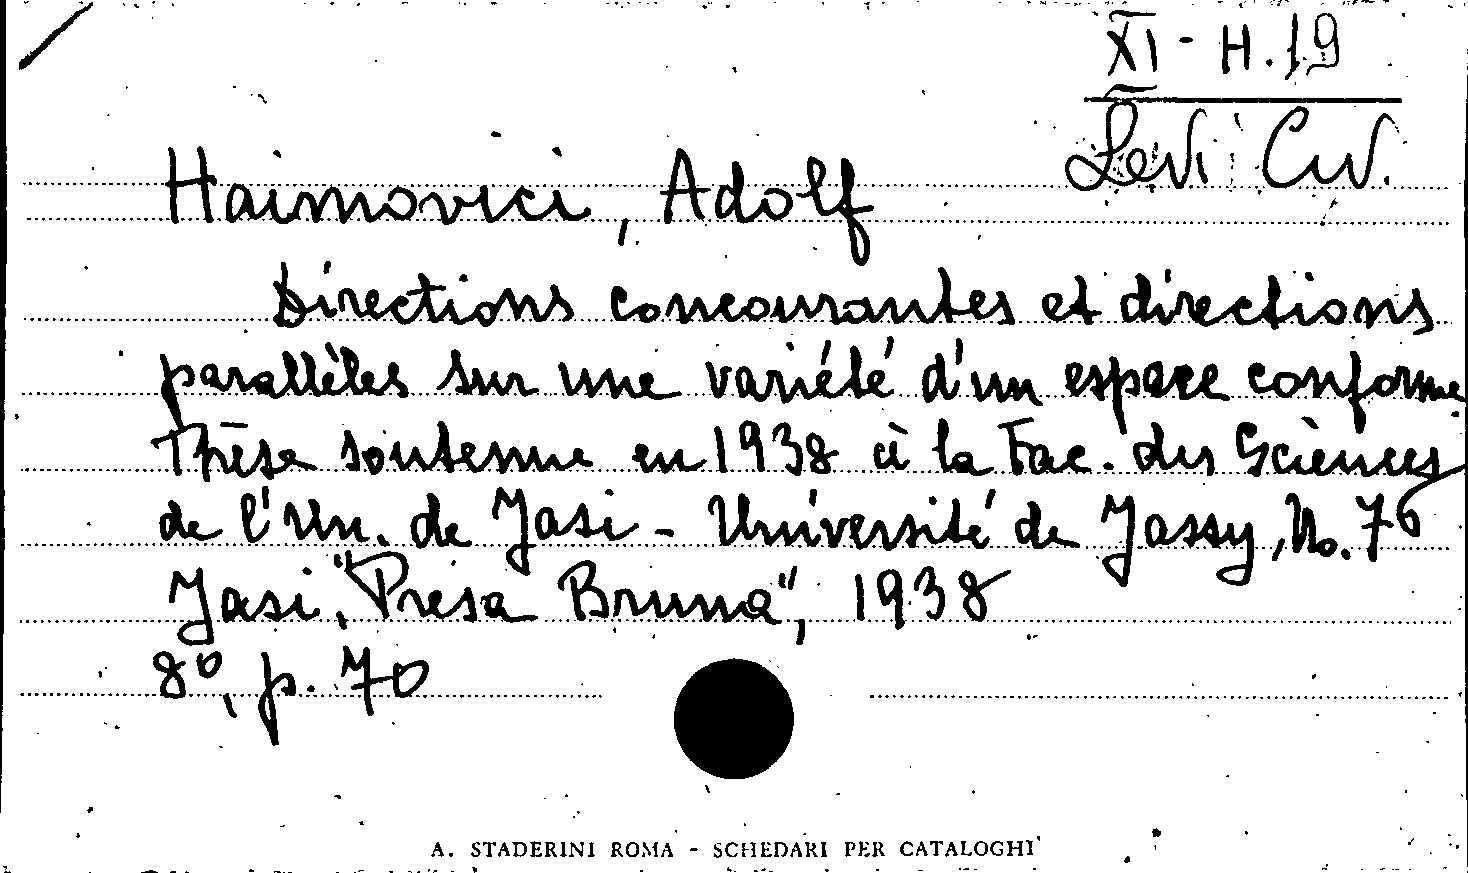 XI - H.19
Levi Civ.
Haimovici, Adolf
Directions concourantes et directions
parallèles sur une variété d'un espace conforme
Thèse soutenue en 1938 à la Fac. des Sciences
de l'Un. de Jasi - Université de Jassy, No. 76
Jasi, "Presa Bruna", 1938
8º, p. 70
A. STADERINI ROMA - SCHEDARI PER CATALOGHI